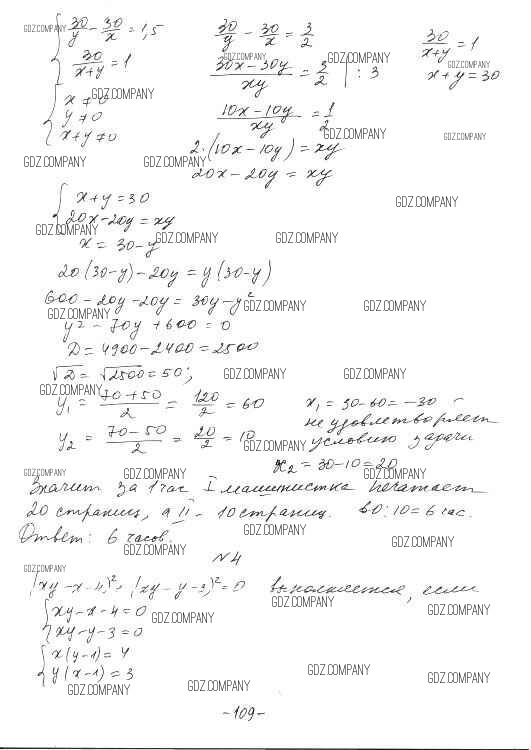 { 30/y - 30/x = 1,5
30/(x+y) = 1
{ x ≠ 0
y ≠ 0
x+y ≠ 0
30/y - 30/x = 3/2
(30x-30y)/xy = 3/2 | : 3
(10x-10y)/xy = 1/2
2·(10x-10y) = xy
20x-20y = xy
30/(x+y) = 1
x+y = 30
{ x+y = 30
20x-20y = xy
x = 30-y
20(30-y)-20y = y(30-y)
600-20y-20y = 30y-y²
y²-70y+600 = 0
D = 4900-2400 = 2500
√D = √2500 = 50;
y₁ = (70+50)/2 = 120/2 = 60
y₂ = (70-50)/2 = 20/2 = 10
x₁ = 30-60 = -30 -
не удовлетворяет
условию задачи
x₂ = 30-10 = 20
Значит за 1 час I машинистка печатает
20 страниц, а II - 10 страниц. 60:10 = 6 час.
Ответ: 6 часов.
N4
(xy-x-4)²+(xy-y-3)² = 0 выполняется, если
{ xy-x-4 = 0
xy-y-3 = 0
{ x(y-1) = 4
y(x-1) = 3
-109-
GDZ.COMPANY